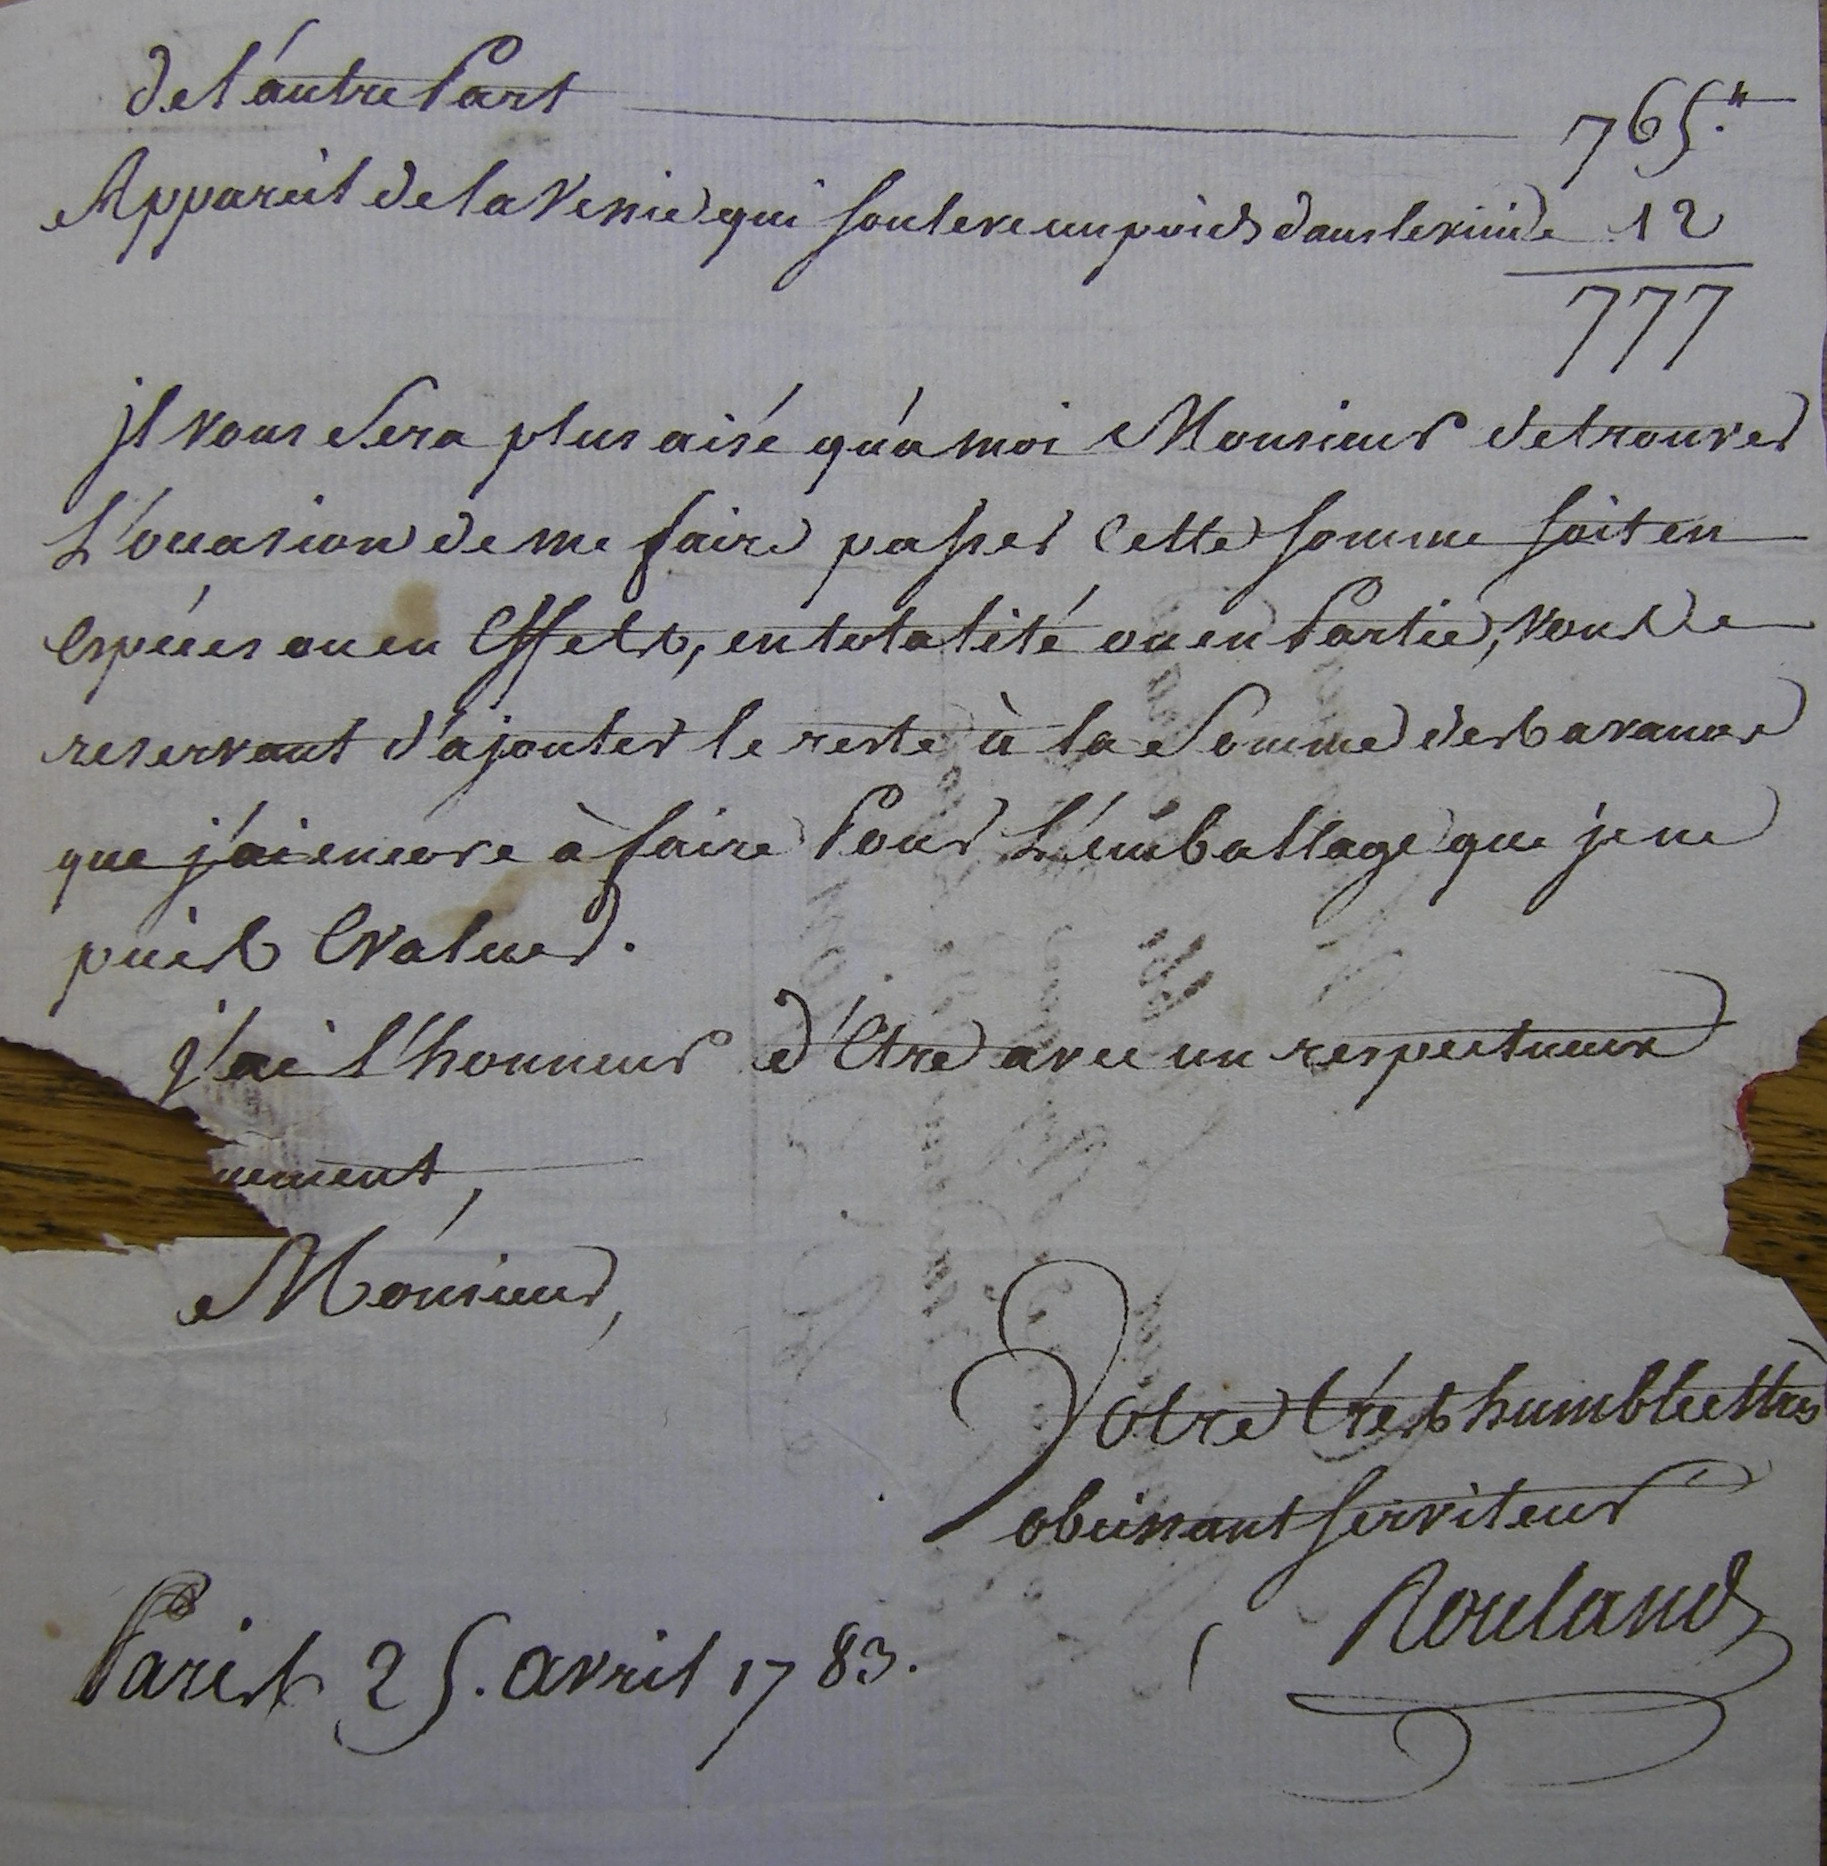 de l'autre Part 765.tt
Appareil de la Vessie qui souleve un poids dans le vuide 12
777
jl vous Sera plus aisé qu'a moi Monsieur de trouver
L'occasion de me faire passer Cette somme soit en
Espéces ou en Effets, en totalité ou en Partie, vous
reservant d'ajouter le reste à la Somme des avances
que j'ai encore à faire Pour L'emballage que je ne
puis Evaluer.
j'ai l'honneur d'Etre avec un respectueux
nement,
Monsieur,
Votre trés humble et tres
obeissant serviteur
Rouland
Paris 25. avril 1783.